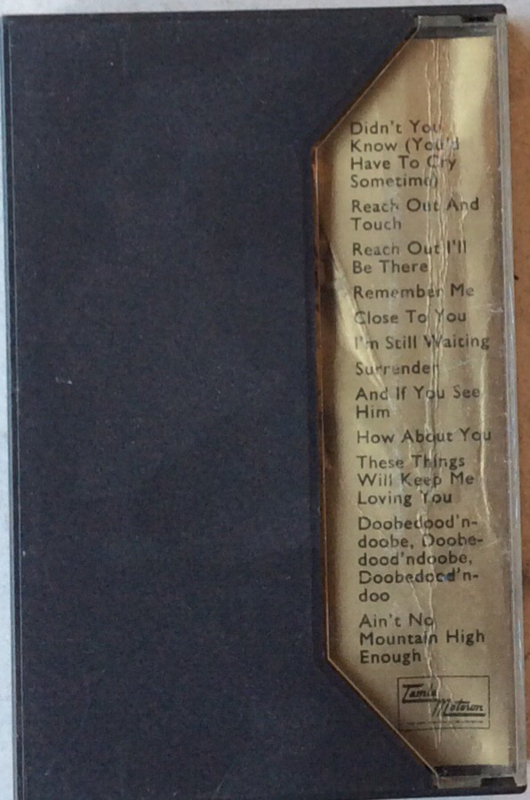 Didn't You
Know (You'd
Have To Cry
Sometime)
Reach Out And
Touch
Reach Out I'll
Be There
Remember Me
Close To You
I'm Still Waiting
Surrender
And If You See
Him
How About You
These Things
Will Keep Me
Loving You
Doobedood'n-
doobe, Doobe-
dood'ndoobe,
Doobedood'n-
doo
Ain't No
Mountain High
Enough
Tamla
Motown